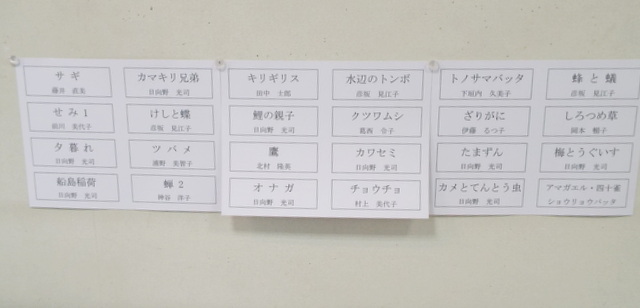 サギ
藤井 直美
カマキリ兄弟
日向野 光司
せみ1
前川 美代子
けしと蝶
彦坂 見江子
夕暮れ
日向野 光司
ツバメ
浦野 美智子
船島稲荷
日向野 光司
蝉2
神谷 洋子
キリギリス
田中 士郎
水辺のトンボ
彦坂 見江子
鯉の親子
日向野 光司
クツワムシ
葛西 令子
鷹
北村 陽美
カワセミ
日向野 光司
オナガ
日向野 光司
チョウチョ
村上 美代子
トノサマバッタ
下垣内 久美子
蜂と蟻
彦坂 見江子
ざりがに
伊藤 るつ子
しろつめ草
岡本 帽子
たまずん
日向野 光司
梅とうぐいす
日向野 光司
カメとてんとう虫
日向野 光司
アマガエル・四十雀
ショウリョウバッタ